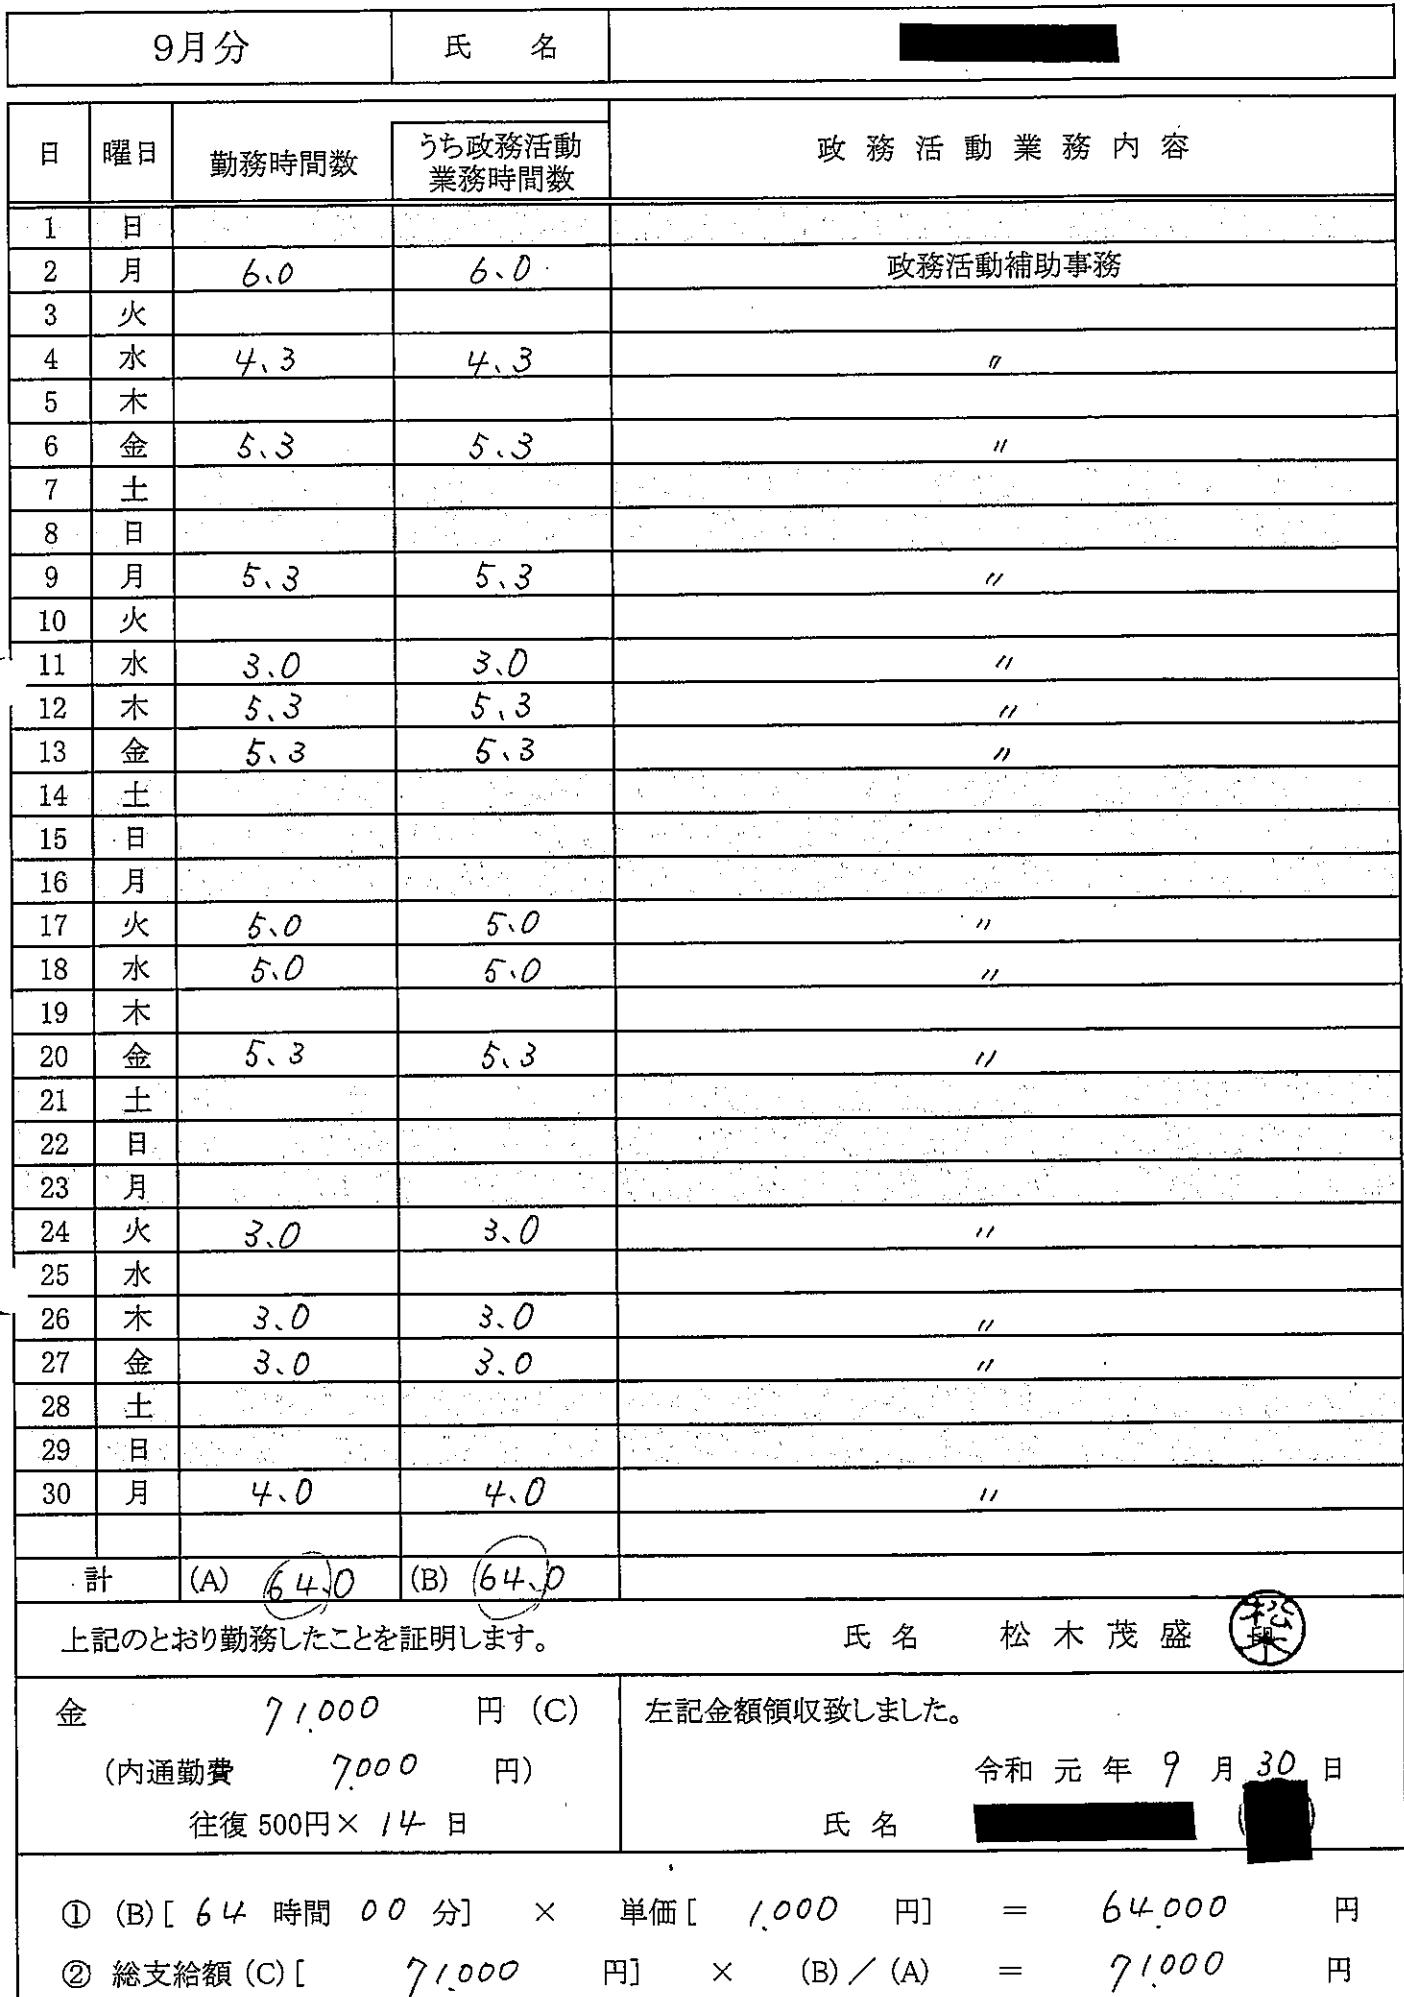 9月分 氏 名
日 曜日 勤務時間数 うち政務活動業務時間数 政務活動業務内容
1 日
2 月 6.0 6.0 政務活動補助事務
3 火
4 水 4.3 4.3 〃
5 木
6 金 5.3 5.3 〃
7 土
8 日
9 月 5.3 5.3 〃
10 火
11 水 3.0 3.0 〃
12 木 5.3 5.3 〃
13 金 5.3 5.3 〃
14 土
15 日
16 月
17 火 5.0 5.0 〃
18 水 5.0 5.0 〃
19 木
20 金 5.3 5.3 〃
21 土
22 日
23 月
24 火 3.0 3.0 〃
25 水
26 木 3.0 3.0 〃
27 金 3.0 3.0 〃
28 土
29 日
30 月 4.0 4.0 〃
計 (A) 64.0 (B) 64.0
上記のとおり勤務したことを証明します。 氏 名 松 木 茂 盛 印
金 71,000 円 (C) 左記金額領収致しました。
(内通勤費 7,000 円) 令和 元 年 9 月 30 日
往復 500円× 14 日 氏 名
① (B)[ 64 時間 00 分] × 単価[ 1,000 円] = 64,000 円
② 総支給額(C)[ 71,000 円] × (B)/(A) = 71,000 円